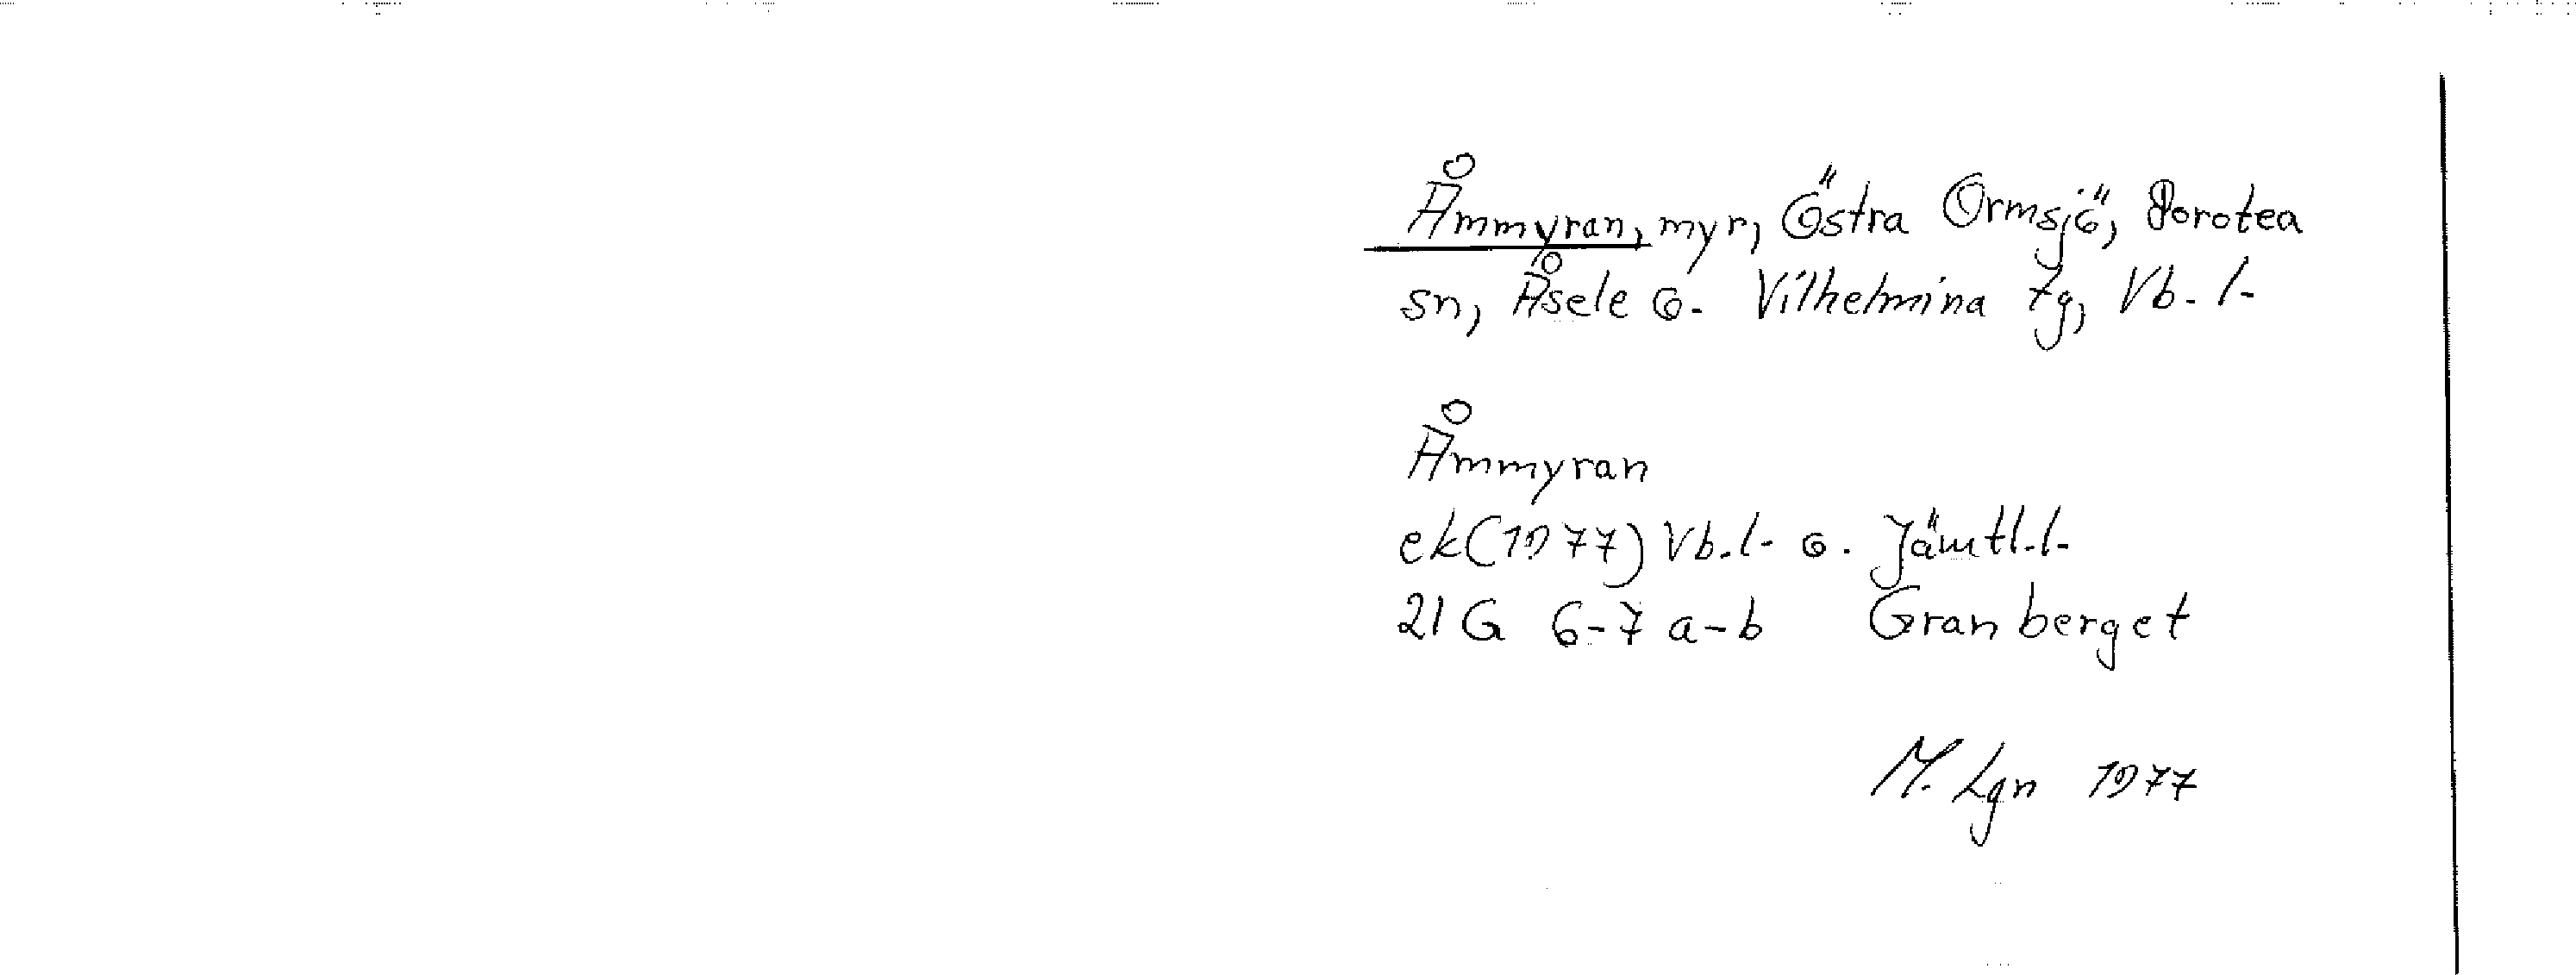 Åmmyran, myr, Östra Ormsjö, Dorotea
sn, Åsele o. Vilhelmina tg, Vb. l.
Åmmyran
ek(1977) Vb.l. o. Jämtl.l.
21G 6-7 a-b Granberget
M. Lgn 1977